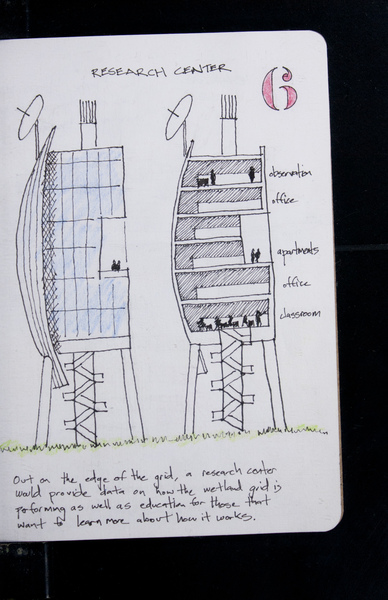 RESEARCH CENTER
6
observation
office
apartments
office
classroom
Out on the edge of the grid, a research center
would provide data on how the wetland grid is
performing as well as education for those that
want to learn more about how it works.